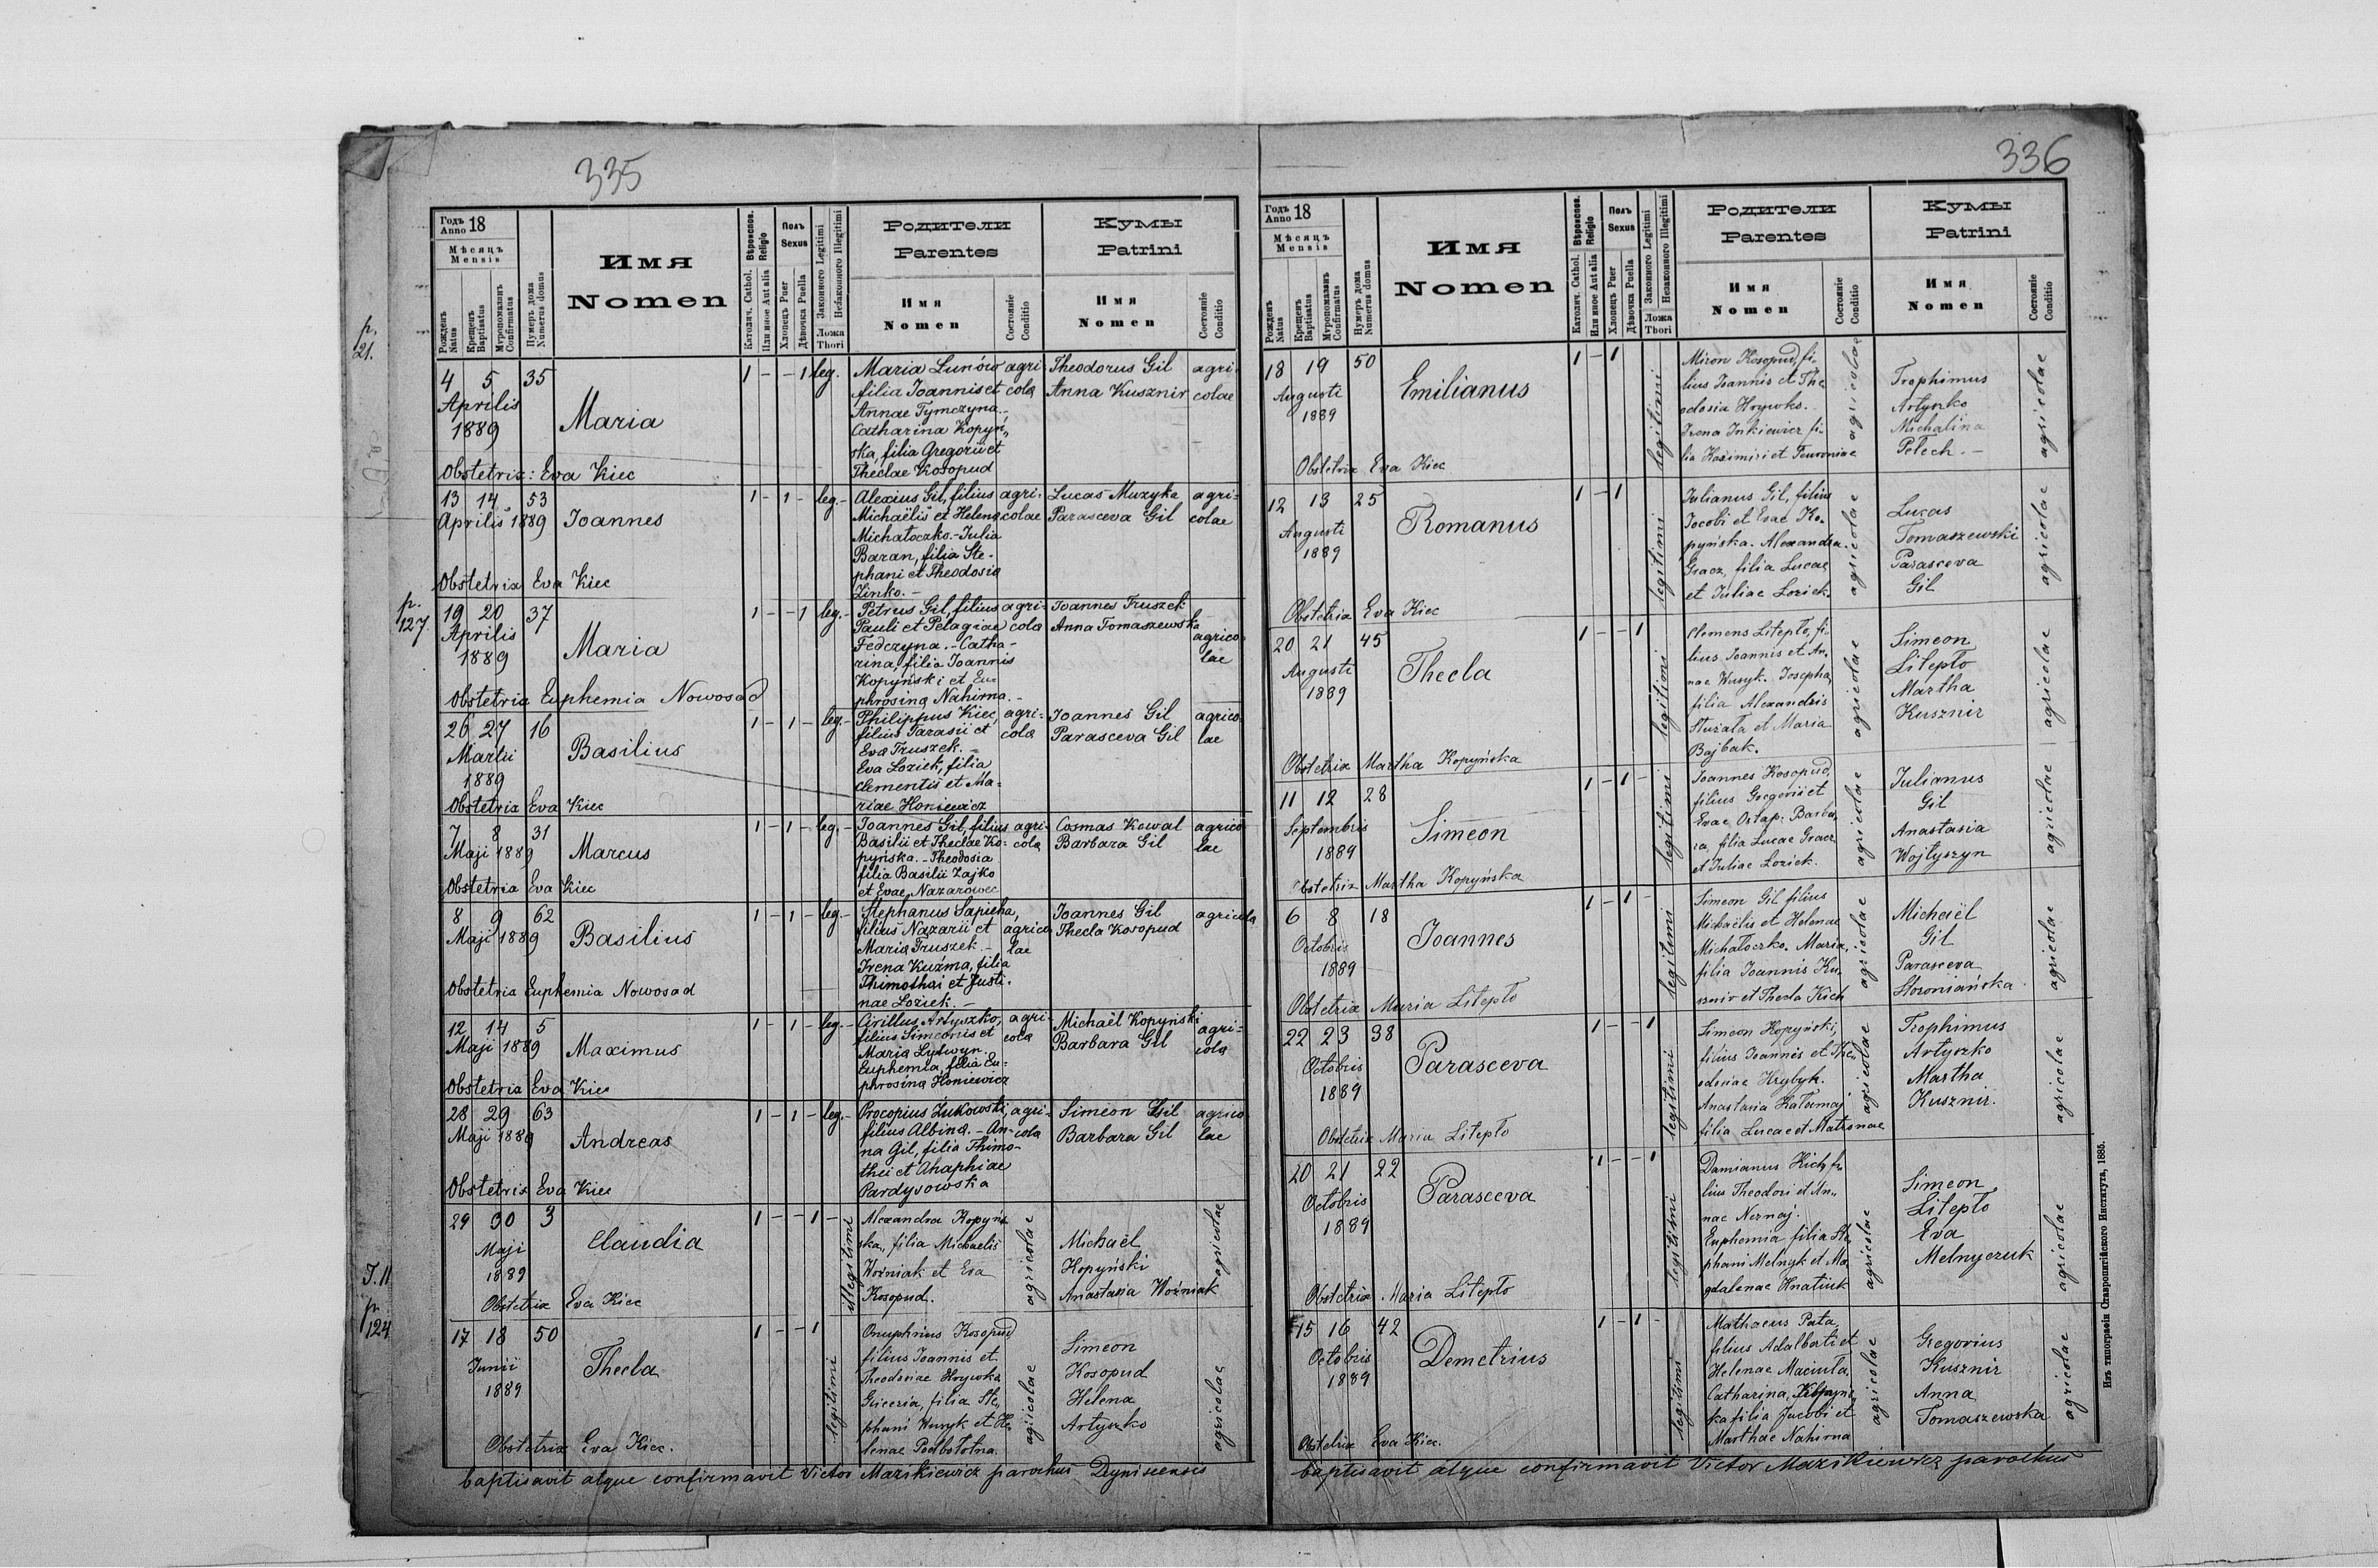 335
Годъ 18
Anno
Мѣсяцъ
Mensis
Рожденъ
Natus
Крещенъ
Baptisatus
Муропомазанъ
Confirmatus
Нумеръ дома
Numerus domus
Имя
Nomen
Вѣроиспов.
Religio
Католич. Cathol.
Или иное Aut alia
Полъ
Sexus
Хлопецъ Puer
Дѣвочка Puella
Законного Legitimi
Незаконного Illegitimi
Ложа
Thori
Родители
Parentes
Имя
Nomen
Состояніе
Conditio
Кумы
Patrini
Имя
Nomen
Состояніе
Conditio
p.
21.
4 5 35
Aprilis
1889
Maria
1 - - 1 leg.
Maria Lunów
filia Joannis et
Annae Tymczyna.-
Catharina Kopyń
ska, filia Gregorii et
Theclae Kosopud
agri
cola
Theodorus Gil
Anna Kusznir
agri
colae
Obstetrix: Eva Kiec
13 14 53
Aprilis 1889
Joannes
1 - 1 - leg.-
Alexius Gil, filius
Michaëlis et Helena
Michałoczko.-Julia
Baran, filia Ste-
phani et Theodosia
Zinko.-
agri-
colae
Lucas Muzyka
Parasceva Gil
agri-
colae
Obstetrix Eva Kiec
p.
127.
19 20 37
Aprilis
1889
Maria
1 - - 1 leg.-
Petrus Gil, filius
Pauli et Pelagiae
Fedczyna.-Catha-
rina, filia Joannis
Kopyński et Eu-
phrosina Nahirna.-
agri-
cola
Joannes Truszek
Anna Tomaszewska
agrico
lae
Obstetrix Euphemia Nowosad
26 27 16
Martii
1889
Basilius
1 - 1 - leg.-
Philippus Kiec,
filius Tarasii et
Eva Truszek.-
Eva Loziek, filia
Clementis et Ma-
riae Honiewicz
agri-
cola
Joannes Gil
Parasceva Gil
agrico
lae
Obstetrix Eva Kiec
7 8 31
Maji 1889
Marcus
1 - 1 - leg.-
Joannes Gil, filius
Basilii et Theclae Ko-
pyńska.-Theodosia
filia Basilii Zajko
et Evae Nazarowec
agri-
cola
Cosmas Kowal
Barbara Gil
agrico
lae
Obstetrix Eva Kiec
8 9 62
Maji 1889
Basilius
1 - 1 - leg.-
Stephanus Sapieha,
filius Nazarii et
Maria Truszek.-
Irena Kuźma, filia
Thimothai et Justi-
nae Loziek.-
agrico
lae
Joannes Gil
Thecla Kosopud
agricola
Obstetrix Euphemia Nowosad
12 14 5
Maji 1889
Maximus
1 - 1 - leg.-
Cirillus Artyszko,
filius Simeonis et
Maria Lytwyn.
Euphemia, filia Eu-
phrosina Honiewicz
agri-
cola
Michaël Kopyński
Barbara Gil
agri-
cola
Obstetrix Eva Kiec
28 29 63
Maji 1889
Andreas
1 - 1 - leg.-
Procopius Żukowski,
filius Albina.-An-
na Gil, filia Thimo-
thei et Ahaphiae
Pardysowska
agri-
cola
Simeon Gil
Barbara Gil
agrico
lae
Obstetrix Eva Kiec
29 30 3
Maji
1889
Claudia
1 - - 1 -
illegitimi
Alexandra Kopyń
ska, filia Michaelis
Woźniak et Eva
Kosopud.
agricolae
Michaël
Kopyński
Anastasia Woźniak
agricolae
Obstetrix Eva Kiec
T. 11
p.
124
17 18 50
Junii
1889
Thecla
1 - - 1
legitimi
Onuphrius Kosopud
filius Joannis et
Theodosiae Hrywka
Gliceria, filia Ste
phani Wusyk et He
lenae Podbołotna.
agricolae
Simeon
Kosopud
Helena
Artyszko
agricolae
Obstetrix Eva Kiec.
baptisavit atque confirmavit Victor Mazikiewicz parochus Dynisensis
336
Годъ 18
Anno
Мѣсяцъ
Mensis
Рожденъ
Natus
Крещенъ
Baptisatus
Муропомазанъ
Confirmatus
Нумеръ дома
Numerus domus
Имя
Nomen
Вѣроиспов.
Religio
Католич. Cathol.
Или иное Aut alia
Полъ
Sexus
Хлопецъ Puer
Дѣвочка Puella
Законного Legitimi
Незаконного Illegitimi
Ложа
Thori
Родители
Parentes
Имя
Nomen
Состояніе
Conditio
Кумы
Patrini
Имя
Nomen
Состояніе
Conditio
18 19 50
Augusti
1889
Emilianus
1 - 1
legitimi
Miron Kosopud, fi-
lius Joannis et The
odosia Hrywko.
Irena Inkiewicz fi-
lia Kazimiri et Feuroniae
agricolae
Trophimus
Artyszko
Michalina
Pełech.-
agricolae
Obstetrix Eva Kiec
12 13 25
Augusti
1889
Romanus
1 - 1
legitimi
Julianus Gil, filius
Jacobi et Evae Ko-
pyńska. Alexandra
Gracz, filia Lucae
et Juliae Loziek.
agricolae
Lucas
Tomaszewski
Parasceva
Gil
agricolae
Obstetrix Eva Kiec
20 21 45
Augusti
1889
Thecla
1 - - 1
legitimi
Clemens Litepło, fi-
lius Joannis et An-
nae Wusyk. Josepha,
filia Alexandris
Sturała et Maria
Bajbak.
agricolae
Simeon
Litepło
Martha
Kusznir
agricolae
Obstetrix Martha Kopyńska
11 12 28
Septembris
1889
Simeon
1 - 1 -
legitimi
Joannes Kosopud,
filius Gregorii et
Evae Ostap. Barba
ra, filia Lucae Gracz
et Juliae Loziek.
agricolae
Julianus
Gil
Anastasia
Wojtyszyn
agricolae
Obstetrix Martha Kopyńska
6 8 18
Octobris
1889
Joannes
1 - 1 -
legitimi
Simeon Gil filius
Michaëlis et Helenae
Michałoczko. Maria,
filia Joannis Ku
sznir et Thecla Kich
agricolae
Michaël
Gil
Parasceva
Słoroniańska.
agricolae
Obstetrix Maria Litepło
22 23 38
Octobris
1889
Parasceva
1 - - 1
legitimi
Simeon Kopyński,
filius Joannis et The
odosiae Hrybyk.
Anastasia Hałamaj
filia Lucae et Matronae
agricolae
Trophimus
Artyszko
Martha
Kusznir.
agricolae
Obstetrix Maria Litepło
20 21 22
Octobris
1889
Parasceva
1 - - 1
legitimi
Damianus Kich fi
lius Theodori et An
nae Neznaj.
Euphemia filia Ste
phani Melnyk et Ma
gdalenae Hnatiuk
agricolae
Simeon
Litepło
Eva
Melnyczuk
agricolae
Obstetrix Maria Litepło
15 16 42
Octobris
1889
Demetrius
1 - 1 -
legitimi
Mathaeus Pata,
filius Adalberti et
Helenae Maciuła,
Catharina, Kopyń
ka filia Jacobi et
Marthae Nahirna
agricolae
Gregorius
Kusznir
Anna
Tomaszewska
agricolae
Obstetrix Eva Kiec.
baptisavit atque confirmavit Victor Mazikiewicz parochus
Изъ типографіи Ставропигійского Института, 1885.